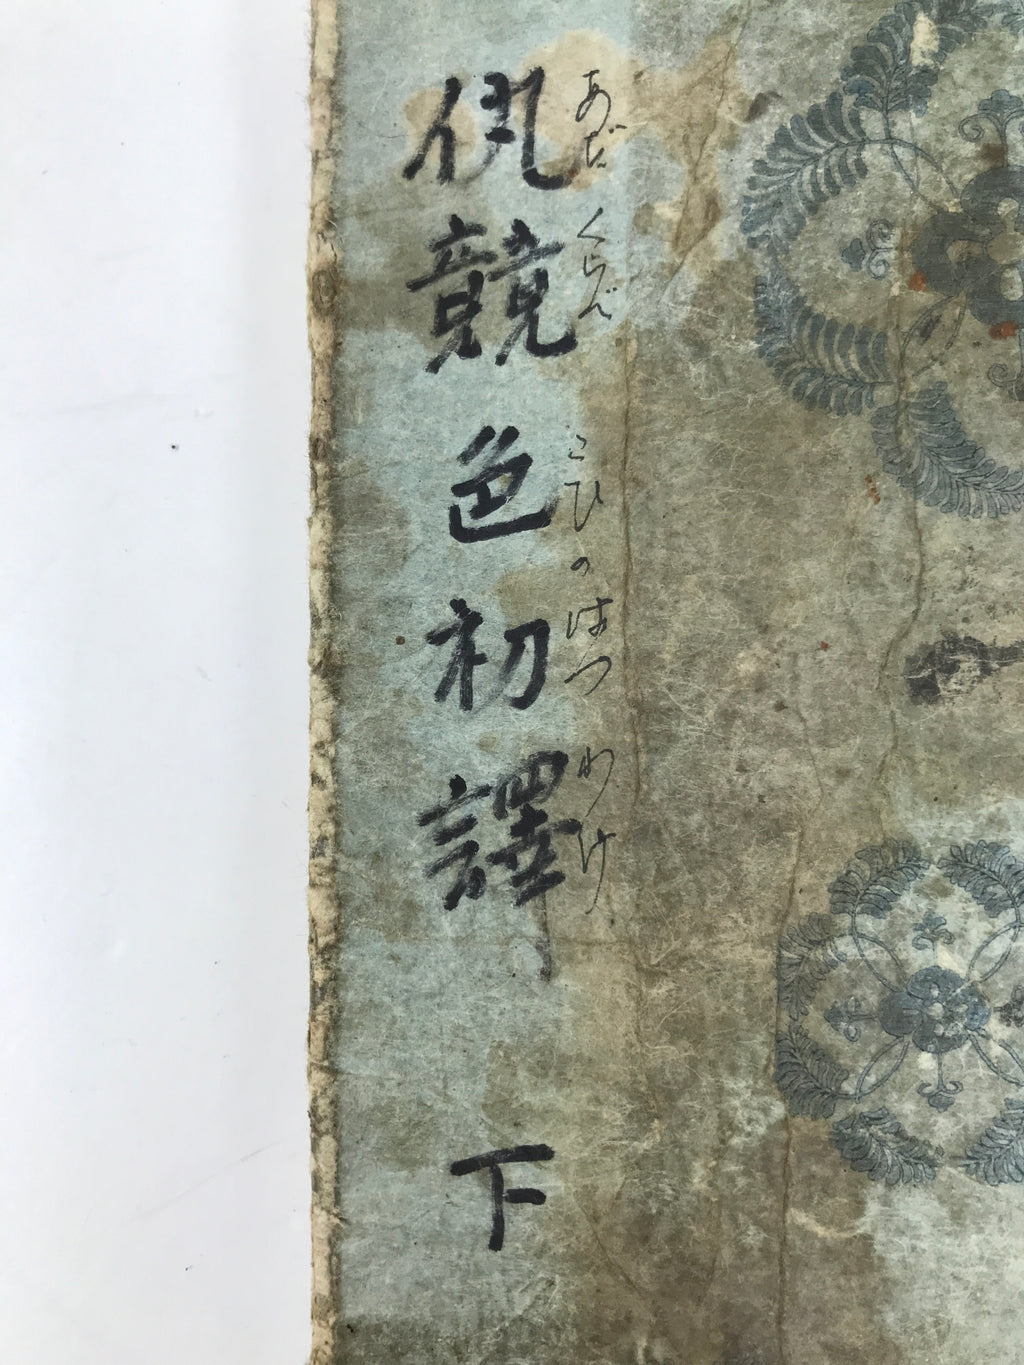 あだ くらべ こひのはつ わけ
競色初譯 下